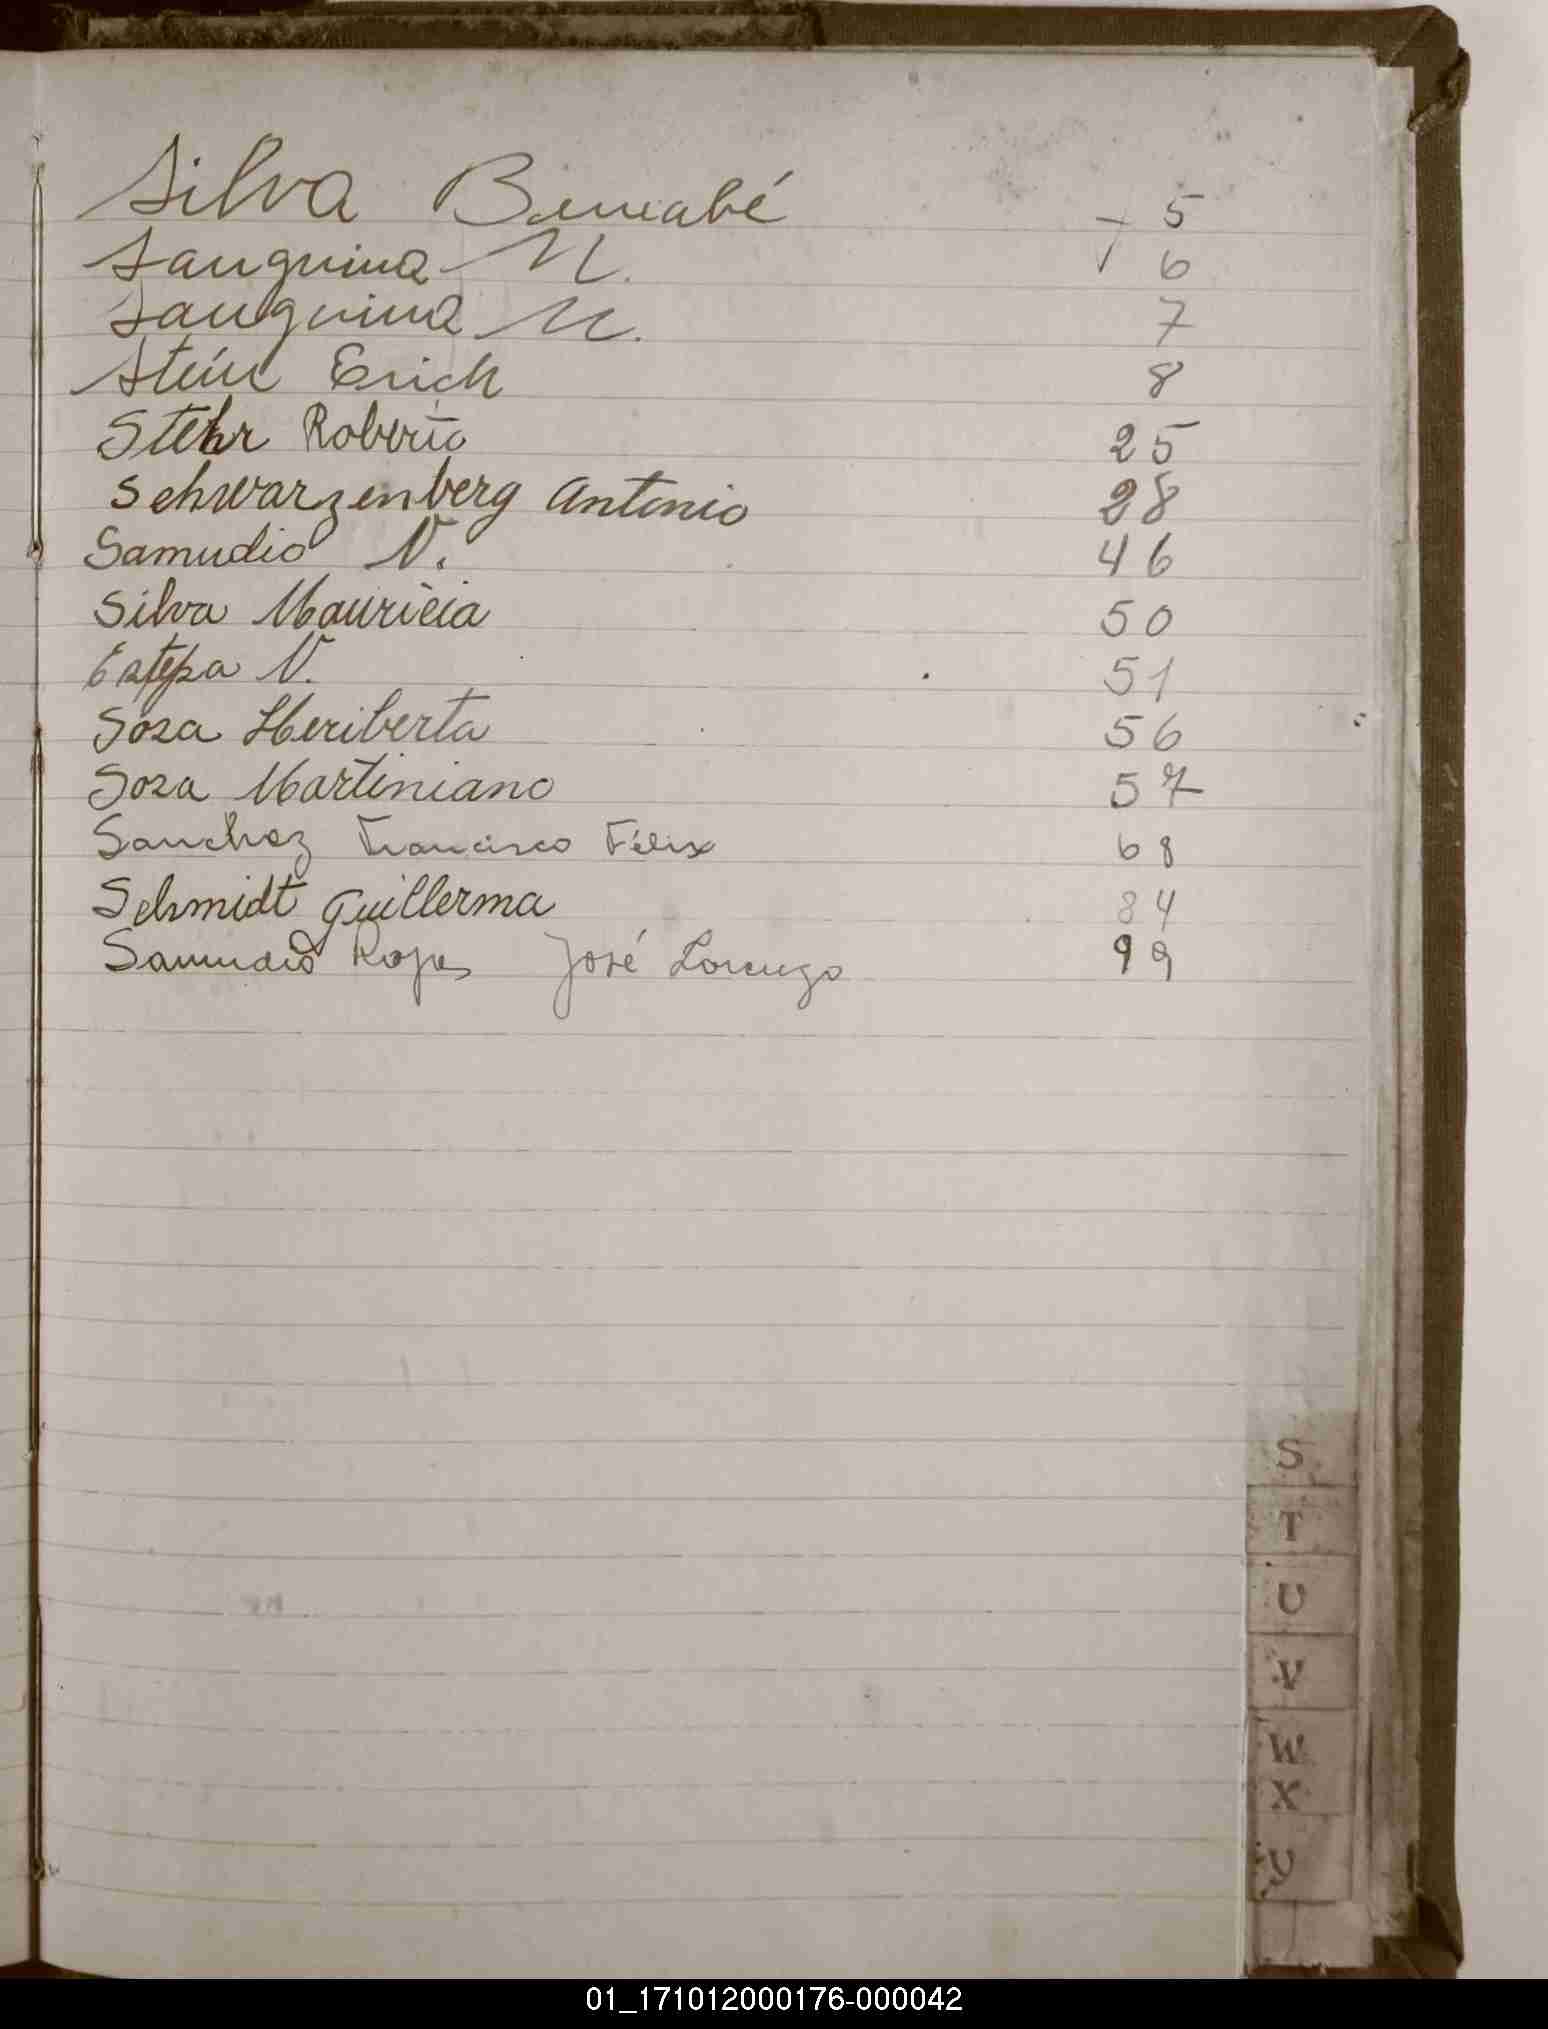 Silva Bernabé + 5
Sanguina N. 6
Sanguina N. 7
Stein Erich 8
Stehr Roberto 25
Schwarzenberg Antonio 28
Samudio N. 46
Silva Mauricia 50
Estepa N. 51
Sosa Heriberta 56
Sosa Martiniano 57
Sanchez Francisco Félix 68
Schmidt Guillerma 84
Samudio Rojas José Lorenzo 99
S
T
U
V
W
X
Y
01_171012000176-000042